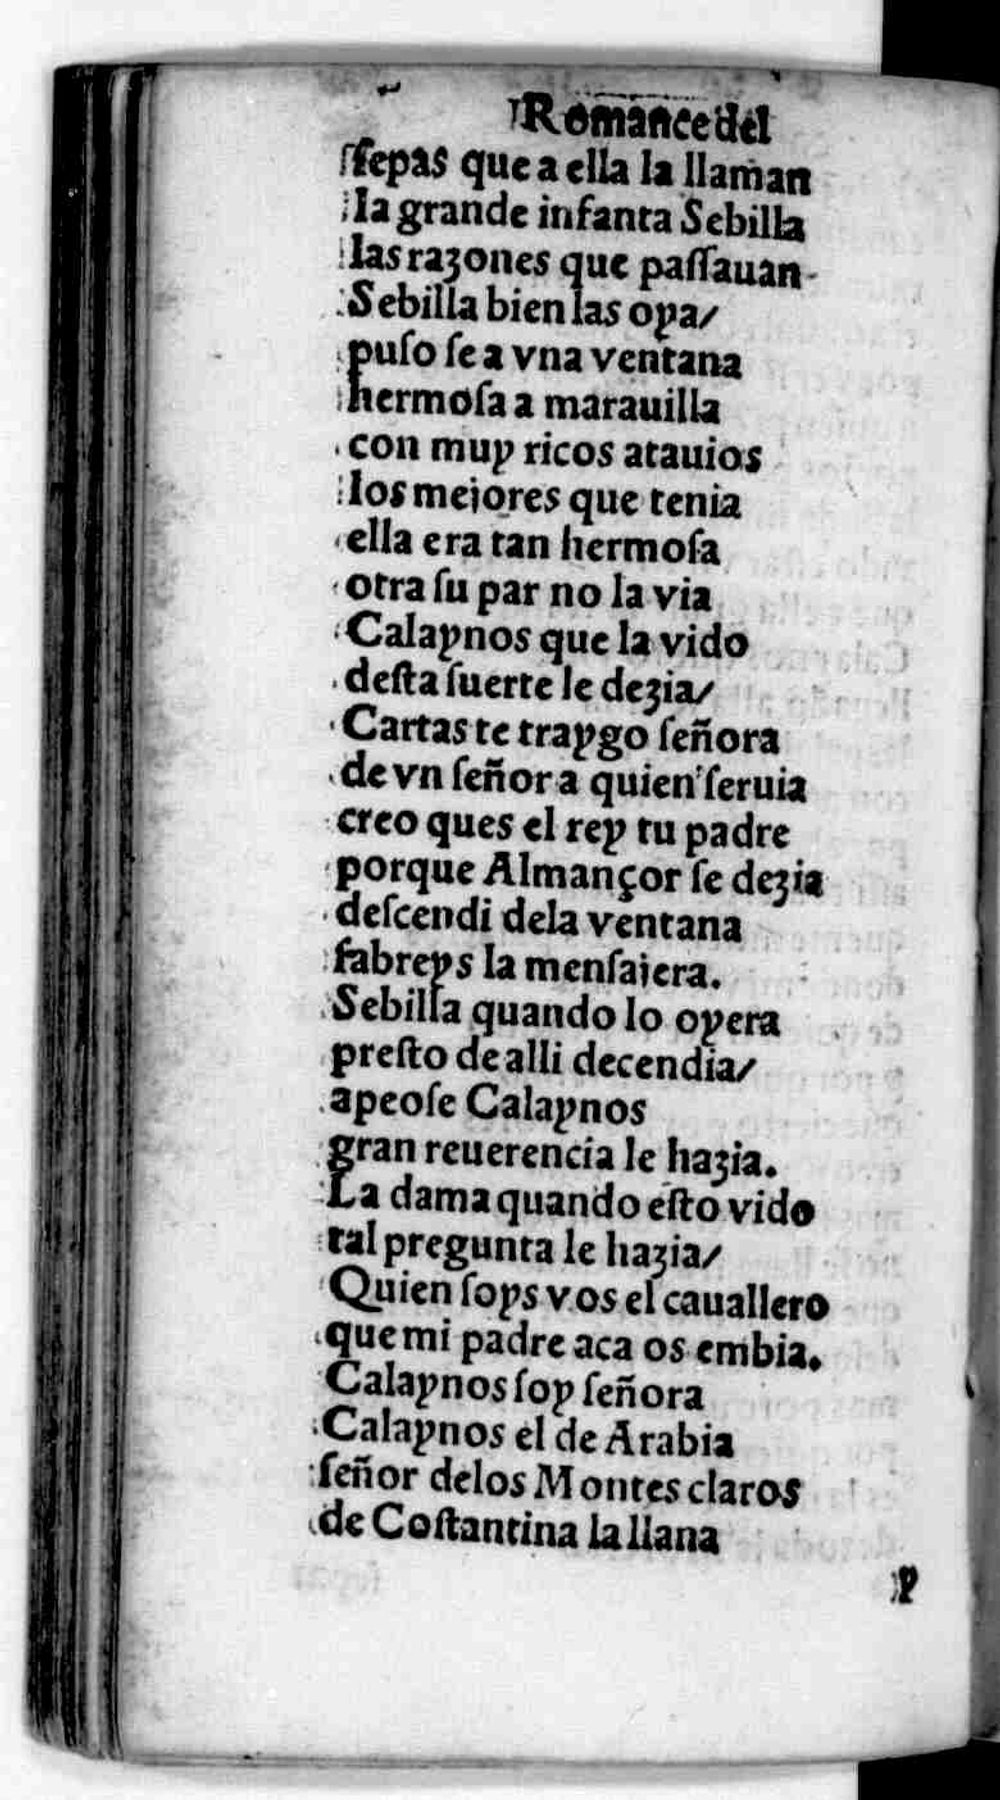 Romance del
ſepas que a ella la llaman
la grande infanta Sebilla
las razones que paſſauan
Sebilla bien las oya/
puſo ſe a vna ventana
hermoſa a marauilla
con muy ricos atauios
los mejores que tenia
ella era tan hermoſa
otra ſu par no la via
Calaynos que la vido
deſta ſuerte le dezia/
Cartas te traygo ſeñora
de vn ſeñor a quien ſeruia
creo ques el rey tu padre
porque Almançor ſe dezia
deſcendi dela ventana
ſabreys la menſajera.
Sebilla quando lo oyera
preſto de alli decendia/
apeoſe Calaynos
gran reuerencia le hazia.
La dama quando eſto vido
tal pregunta le hazia/
Quien ſoys vos el cauallero
que mi padre aca os embia.
Calaynos ſoy ſeñora
Calaynos el de Arabia
ſeñor delos Montes claros
de Coſtantina la llana
y